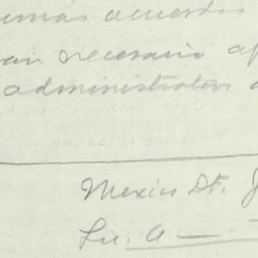 acuerdos
necesario
administrativos
Mexico Df. J
Lic. A